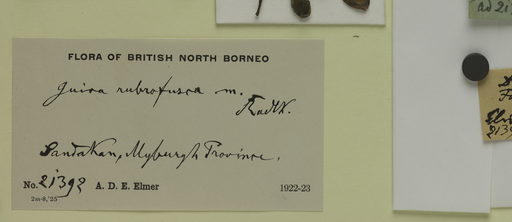 FLORA OF BRITISH NORTH BORNEO
Guioa rubrofusca m.
Radlk.
Sandakan, Myburgh Province.
No. 21392 A. D. E. Elmer 1922-23
2m-8,'25